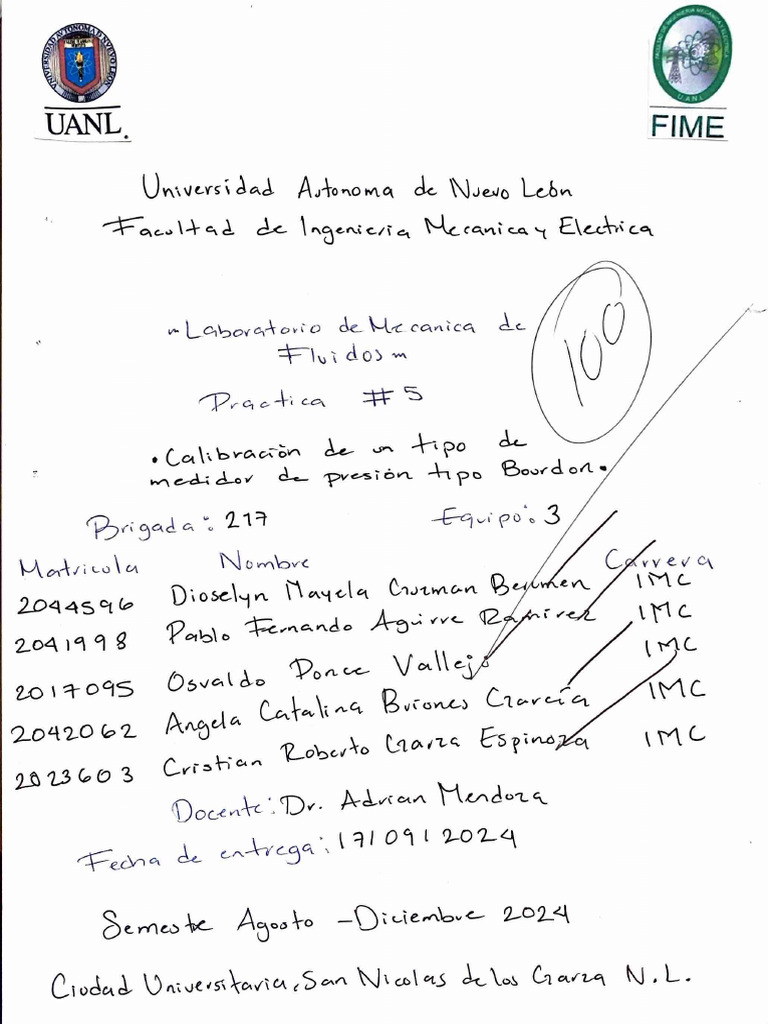 UNIVERSIDAD AUTONOMA DE NUEVO LEON
UANL.
FACULTAD DE INGENIERIA MECANICA Y ELECTRICA
U.A.N.L.
FIME
Universidad Autonoma de Nuevo León
Facultad de Ingenieria Mecanica y Electrica
Laboratorio de Mecanica de
Fluidos
Practica #5
100
• Calibración de un tipo de
medidor de presión tipo Bourdon.
Brigada: 217 Equipo: 3
Matricola Nombre Carrera
2044596 Dioselyn Mayela Guzman Berumen IMC
2041998 Pablo Fernando Aguirre Ramirez IMC
2017095 Osvaldo Ponce Vallejo IMC
2042062 Angela Catalina Briones García IMC
2023603 Cristian Roberto Garza Espinoza IMC
Docente: Dr. Adrian Mendoza
Fecha de entrega: 17/09/2024
Semestre Agosto - Diciembre 2024
Ciudad Universitaria, San Nicolas de los Garza N.L.